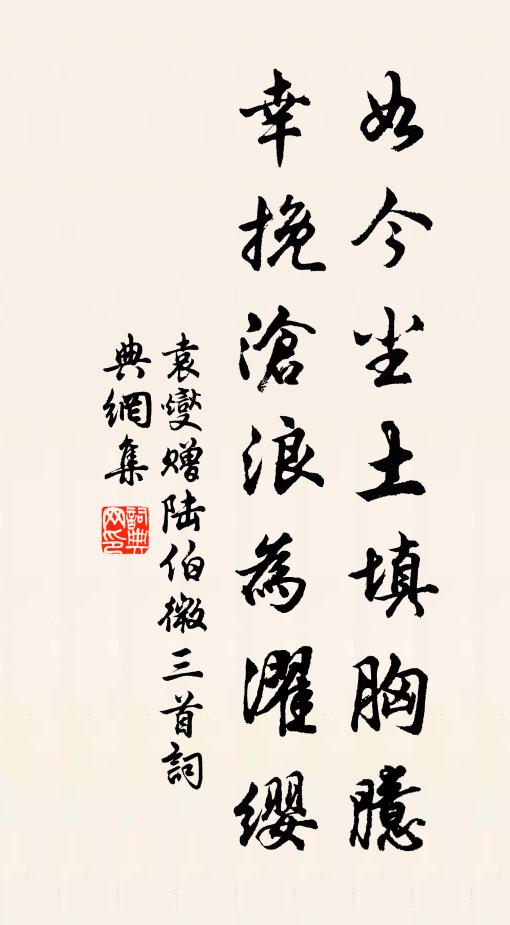 如今尘土填胸臆
幸挽滄浪為濯缨
袁燮赠陆伯微三首詞
典網集
詞典网印